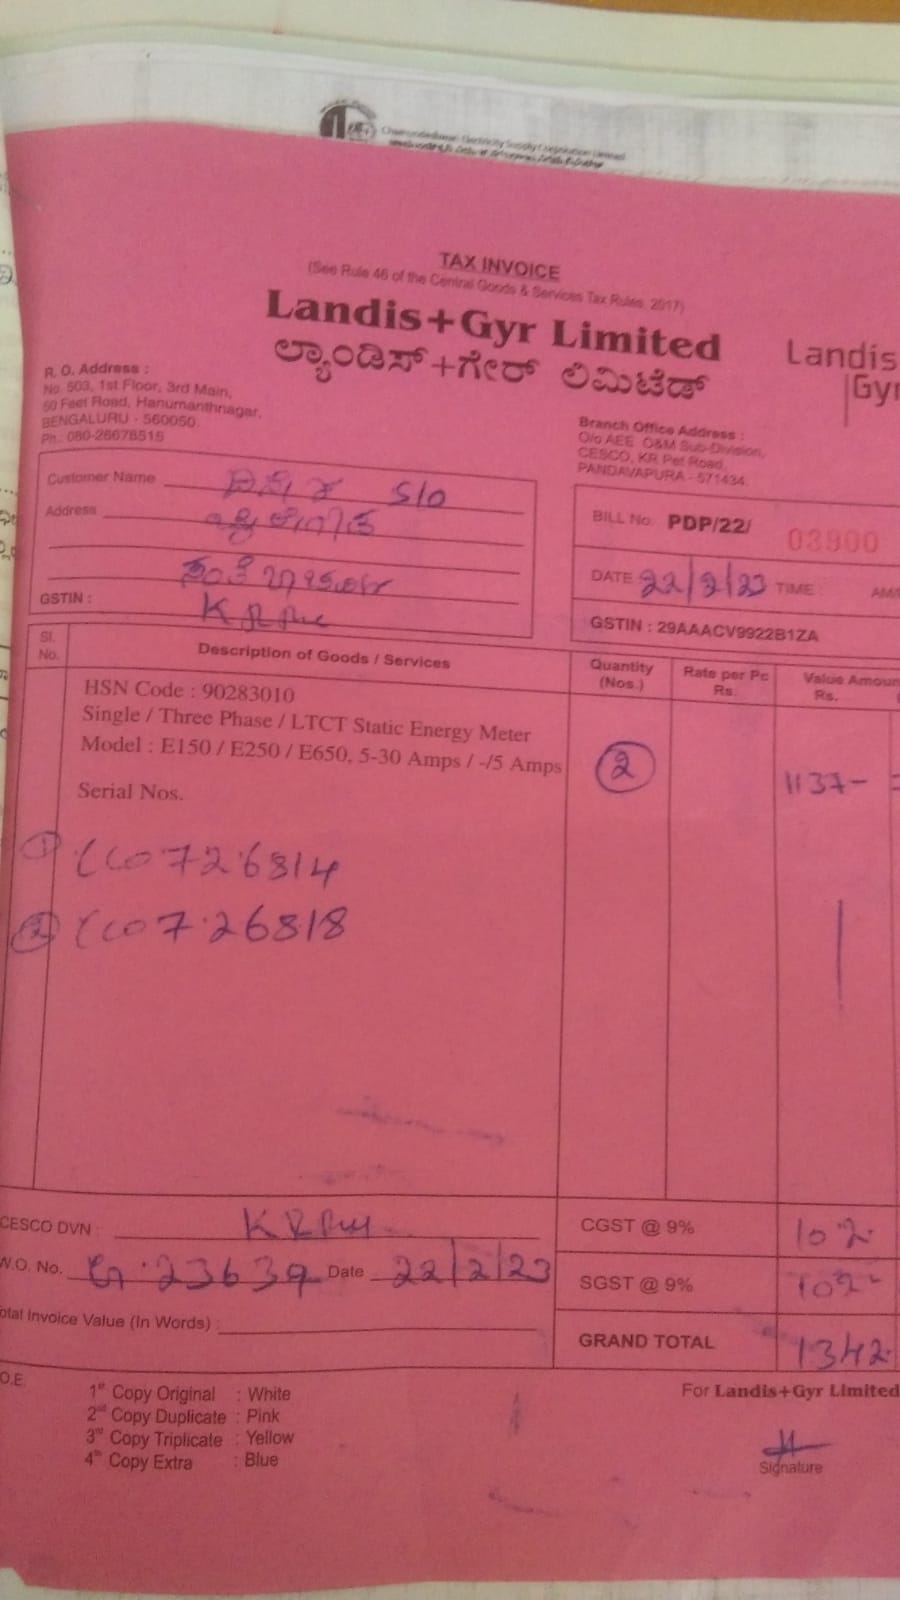 Chamundeshwari Electricity Supply Corporation Limited
TAX INVOICE
(See Rule 46 of the Central Goods & Services Tax Rules, 2017)
Landis+Gyr Limited
ಲ್ಯಾಂಡಿಸ್+ಗೇರ್ ಲಿಮಿಟೆಡ್
Landis
Gyr
R. O. Address :
No. 503, 1st Floor, 3rd Main,
50 Feet Road, Hanumanthnagar,
BENGALURU - 560050.
Ph.: 080-26678515
Branch Office Address :
O/o AEE O&M Sub-Division,
CESCO, KR Pet Road,
PANDAVAPURA - 571434.
Customer Name S/O
Address
GSTIN :
BILL No. PDP/22/ 03900
DATE 22/2/23 TIME : AM/
GSTIN : 29AAACV9922B1ZA
Sl. No. Description of Goods / Services Quantity (Nos.) Rate per Pc Rs. Value Amoun Rs.
HSN Code : 90283010
Single / Three Phase / LTCT Static Energy Meter
Model : E150 / E250 / E650, 5-30 Amps / -/5 Amps 2 1137-
Serial Nos.
1 726814
2 7.26818
CESCO DVN : CGST @ 9% 102-
W.O. No. 23639 Date 22/2/23 SGST @ 9% 102-
otal Invoice Value (In Words) : GRAND TOTAL 1342-
O.E.
1st Copy Original : White
2nd Copy Duplicate : Pink
3rd Copy Triplicate : Yellow
4th Copy Extra : Blue
For Landis+Gyr Limited
Signature